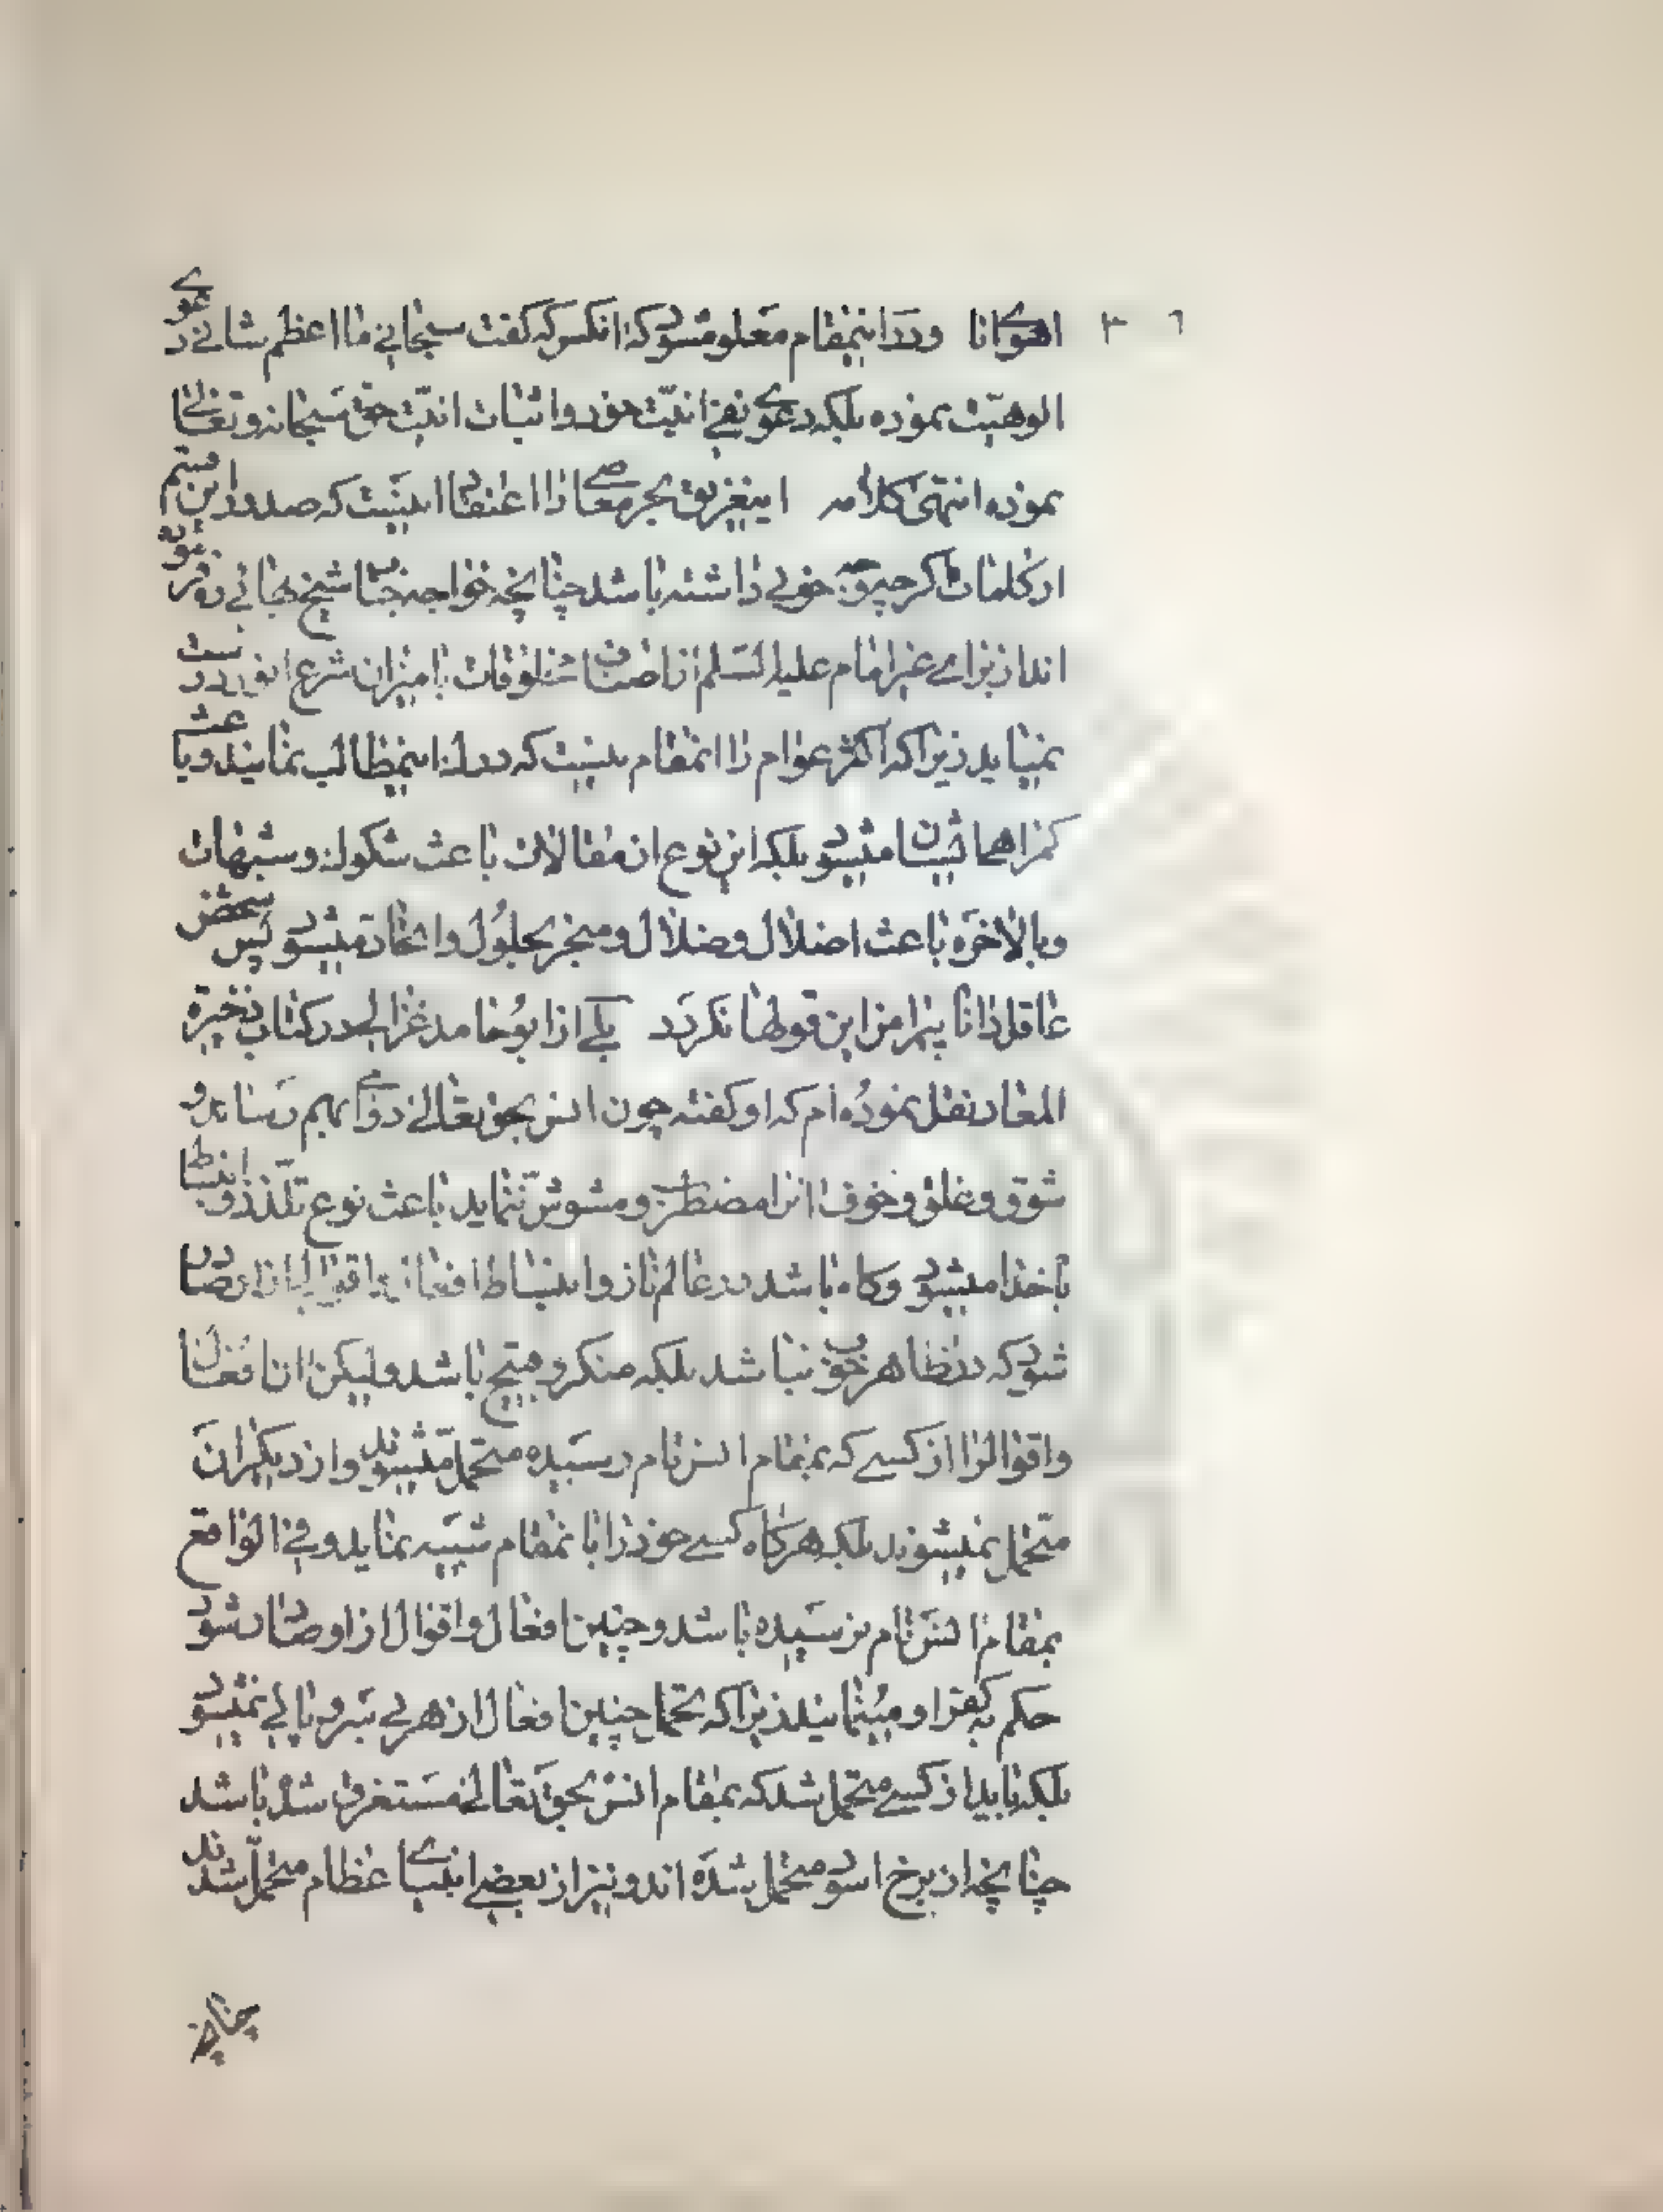 اهوی انا ودر اینمقام معلوم میشود که انکس که گفت سبحانی ما اعظم شانی دعوی
الوهیت نموده بلکه دعوی نفی انیّت خود و اثبات انیّت حق سبحانه و تعالی
نموده انتهی کلامه این غریق بحر معاصی را اعتقاد اینست که صدور این قسم
از کلمات اگر چه وجه خوبی داشته باشد چنانچه خواجه جناب شیخ بهائی ره فرموده
اند از برای غیر امام علیه السلم از اصناف مخلوقات با میزان شرع انور درست
نمیاید زیرا که اکثر عوام را انمقام نیست که درک اینمطالب نمایند و باعث
گمراهی ایشان میشود بلکه این نوع از مقالات باعث شکوک و شبهات
و بالاخره باعث اضلال و ضلال و منجر بحلول و اتحاد میشود پس شخص
عاقل دانا پیرامن این قولها نگردد بلی از ابو حامد غزالی در کتاب ذخیرة
المعاد نقل نموده ام که او گفته چون انس بحق تعالی دوام بهم رساند و
شوق و غلق و خوف انرا مضطرب و مشوش ننماید باعث نوع تلذذ و انبساط
با خدا میشود و گاه باشد در عالم ناز و انبساط افعال و اقوال از او صادر
شود که در ظاهر خوب نباشد بلکه منکر و قبیح باشد ولیکن ان افعال
و اقوال را از کسی که بمقام انس تام رسیده متحمل میشوند و از دیگران
متحمل نمیشوند بلکه هرگاه کسی خود را بانمقام شبیه نماید و فی الواقع
بمقام انس تام نرسیده باشد و چنین افعال و اقوال از او صادر شود
حکم به کفر او مینمایند زیرا که تحمل چنین افعال از هر بی سر و پایی نمیشود
بلکه باید از کسی متحمل شد که بمقام انس بحق تعالی مستغرق شده باشد
چنانچه از برخ اسود متحمل شده اند و نیز از بعضی انبیای عظام متحمل شدند
چنانچه